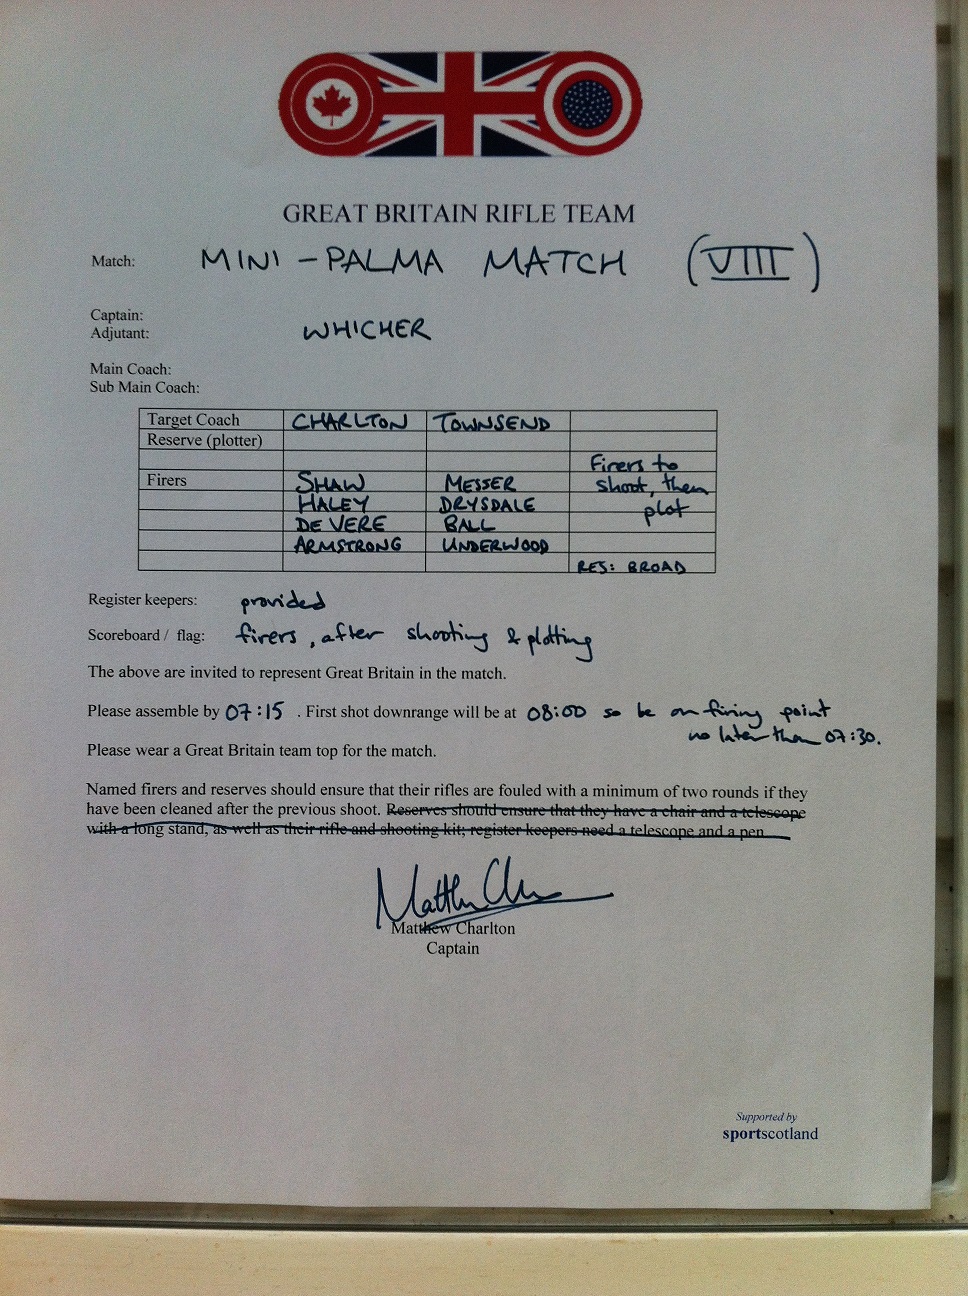 GREAT BRITAIN RIFLE TEAM
Match: MINI-PALMA MATCH (VIII)
Captain:
Adjutant: WHICHER
Main Coach:
Sub Main Coach:
Target Coach CHARLTON TOWNSEND
Reserve (plotter)
Firers to
Firers SHAW MESSER shoot, then
HALEY DRYSDALE plot
DE VERE BALL
ARMSTRONG UNDERWOOD
RES: BROAD
Register keepers: provided
Scoreboard / flag: firers, after shooting & plotting
The above are invited to represent Great Britain in the match.
Please assemble by 07:15 . First shot downrange will be at 08:00 so be on firing point
no later than 07:30.
Please wear a Great Britain team top for the match.
Named firers and reserves should ensure that their rifles are fouled with a minimum of two rounds if they
have been cleaned after the previous shoot. Reserves should ensure that they have a chair and a telescope
with a long stand, as well as their rifle and shooting kit; register keepers need a telescope and a pen
Matthew Charlton
Captain
Supported by
sportscotland